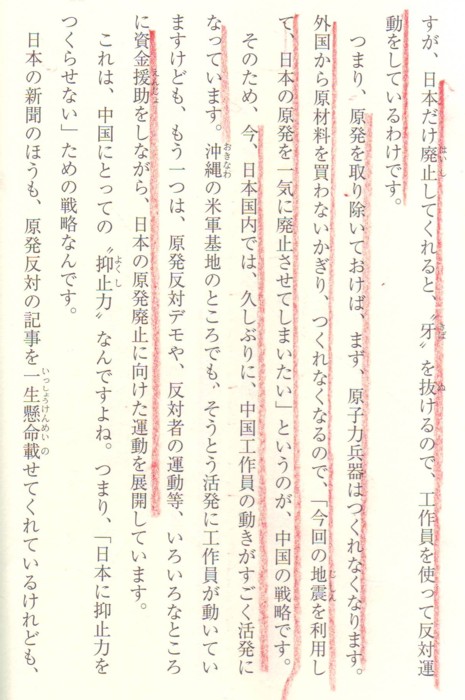 すが、日本だけ廃止してくれると、〝牙〟を抜けるので、工作員を使って反対運
動をしているわけです。
つまり、原発を取り除いておけば、まず、原子力兵器はつくれなくなります。
外国から原材料を買わないかぎり、つくれなくなるので、「今回の地震を利用し
て、日本の原発を一気に廃止させてしまいたい」というのが、中国の戦略です。
そのため、今、日本国内では、久しぶりに、中国工作員の動きがすごく活発に
なっています。沖縄の米軍基地のところでも、そうとう活発に工作員が動いてい
ますけども、もう一つは、原発反対デモや、反対者の運動等、いろいろなところ
に資金援助をしながら、日本の原発廃止に向けた運動を展開しています。
これは、中国にとっての〝抑止力〟なんですよね。つまり、「日本に抑止力を
つくらせない」ための戦略なんです。
日本の新聞のほうも、原発反対の記事を一生懸命載せてくれているけれども、